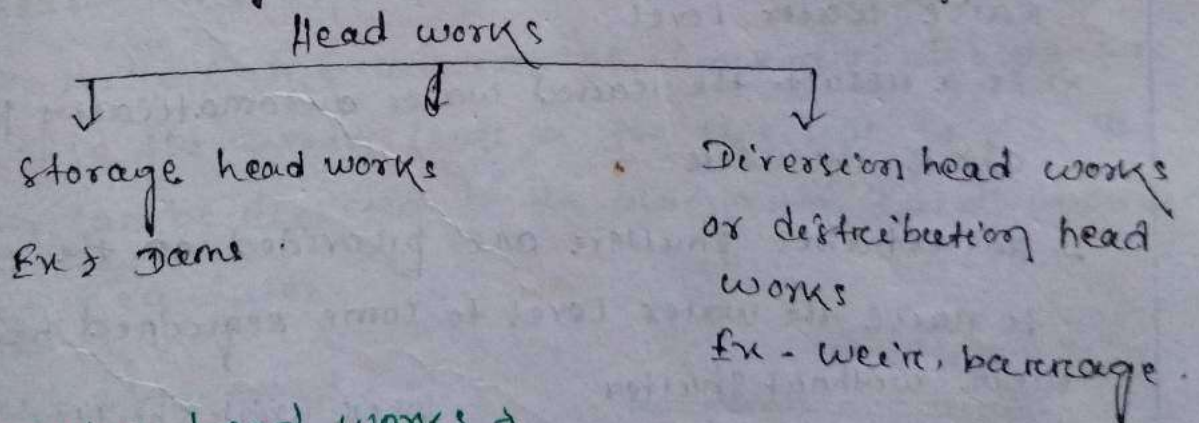 Head works
Storage head works
Ex → Dams.
Diversion head works
or distribution head
works
Ex - weir, barrage.
head works →